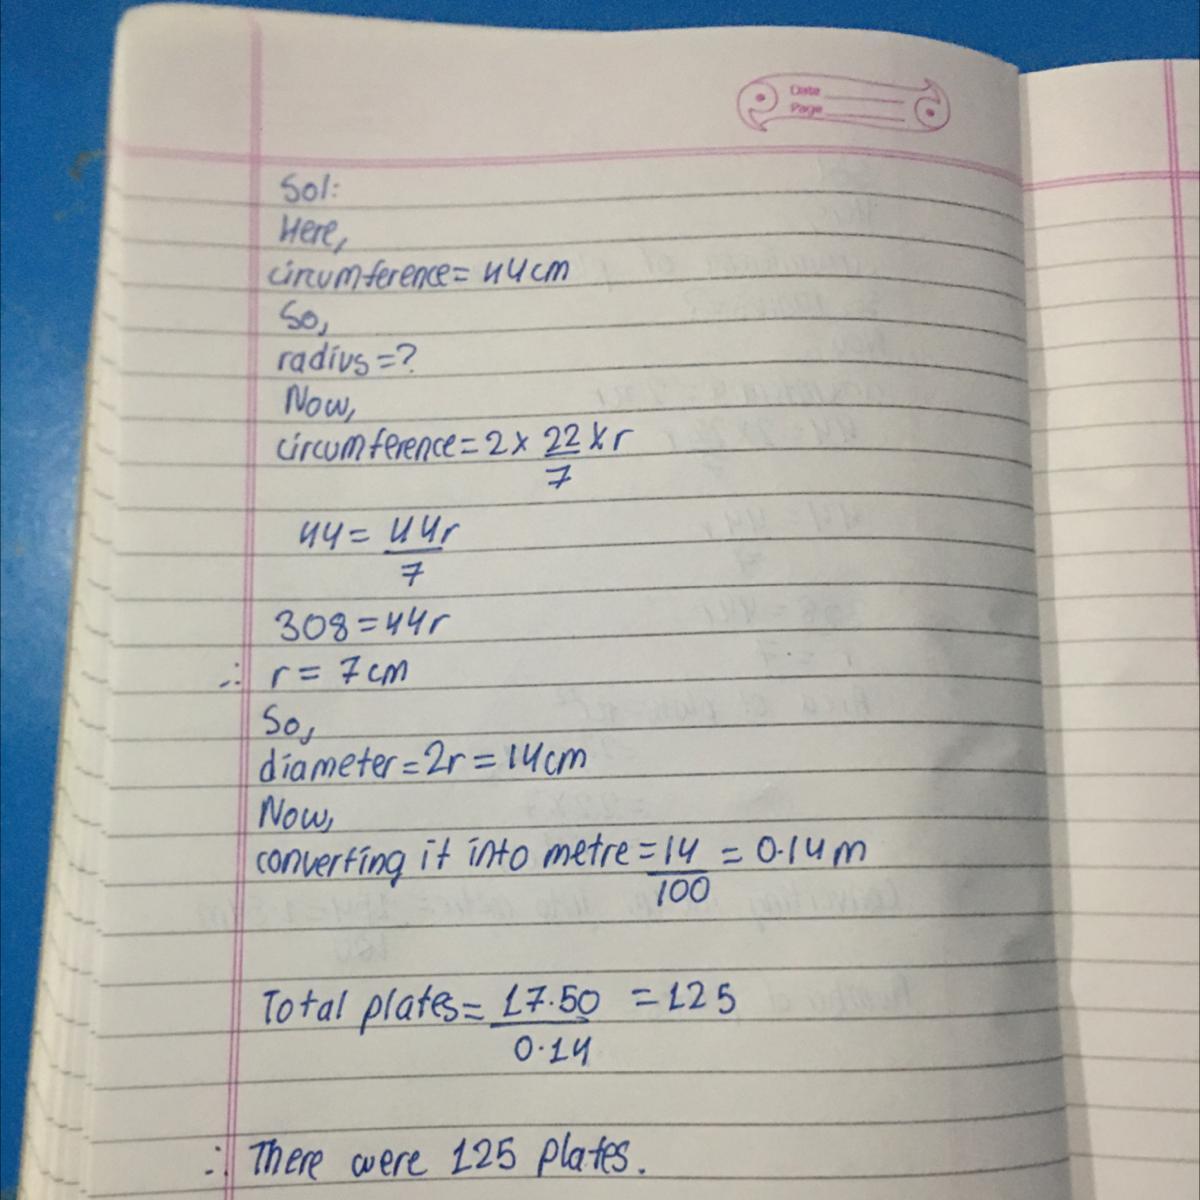 Date
Page
Sol:
Here,
circumference = 44cm
So,
radius = ?
Now,
circumference = 2 × 22/7 × r
44 = 44r/7
308 = 44r
∴ r = 7cm
So,
diameter = 2r = 14cm
Now,
converting it into metre = 14/100 = 0.14m
Total plates = 17.50/0.14 = 125
∴ There were 125 plates.